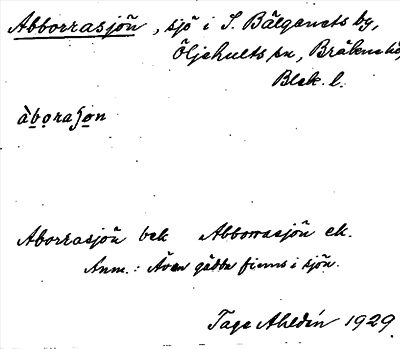 Abborrasjön, sjö i S. Bälganets by,
Öljehults sn, Bräkne hd,
Blek. l.
àboraʃon
Aborrasjön bek Abborrasjön ek.
Anm.: Även gädda finns i sjön.
Tage Ahldén 1929.